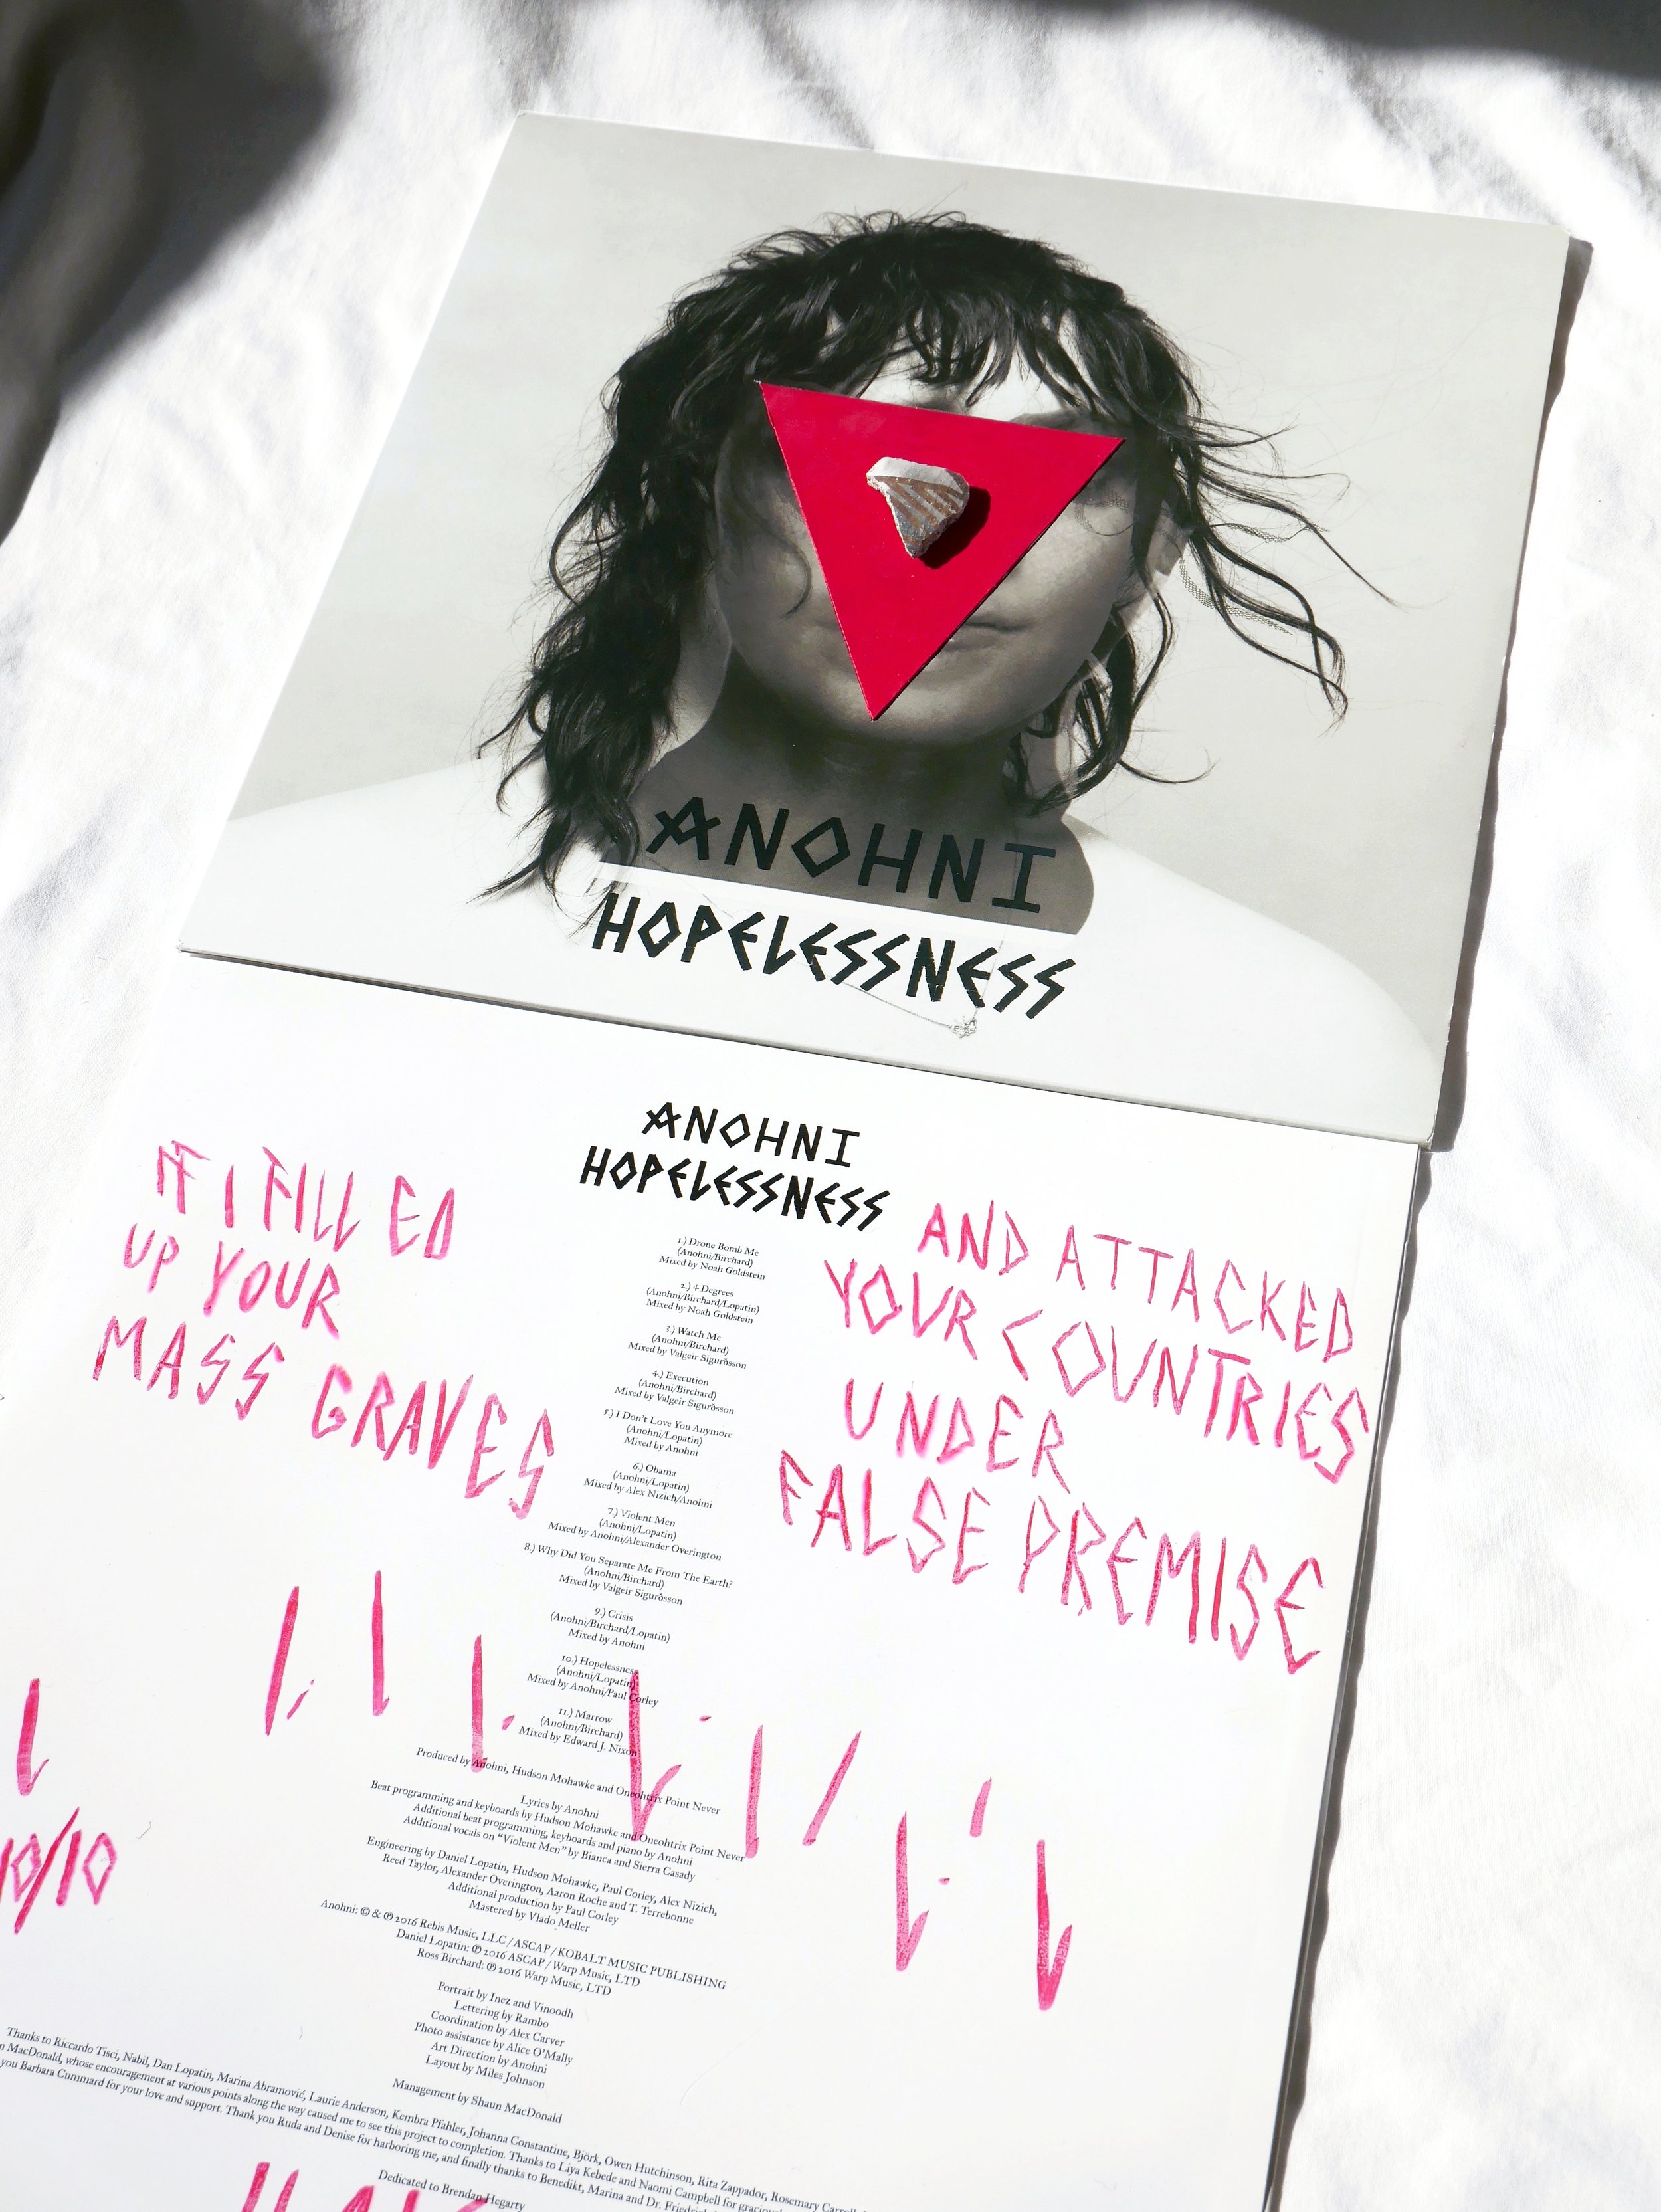 ANOHNI
HOPELESSNESS
ANOHNI
HOPELESSNESS
IF I FILLED
UP YOUR
MASS GRAVES
AND ATTACKED
YOUR COUNTRIES
UNDER
FALSE PREMISE
1.) Drone Bomb Me
(Anohni/Birchard)
Mixed by Noah Goldstein
2.) 4 Degrees
(Anohni/Birchard/Lopatin)
Mixed by Noah Goldstein
3.) Watch Me
(Anohni/Birchard)
Mixed by Valgeir Sigurðsson
4.) Execution
(Anohni/Birchard)
Mixed by Valgeir Sigurðsson
5.) I Don't Love You Anymore
(Anohni/Lopatin)
Mixed by Anohni
6.) Obama
(Anohni/Lopatin)
Mixed by Alex Nizich/Anohni
7.) Violent Men
(Anohni/Lopatin)
Mixed by Anohni/Alexander Overington
8.) Why Did You Separate Me From The Earth?
(Anohni/Birchard)
Mixed by Valgeir Sigurðsson
9.) Crisis
(Anohni/Birchard/Lopatin)
Mixed by Anohni
10.) Hopelessness
(Anohni/Lopatin)
Mixed by Anohni/Paul Corley
11.) Marrow
(Anohni/Birchard)
Mixed by Edward J. Nixon
Produced by Anohni, Hudson Mohawke and Oneohtrix Point Never
Lyrics by Anohni
Beat programming and keyboards by Hudson Mohawke and Oneohtrix Point Never
Additional beat programming, keyboards and piano by Anohni
Additional vocals on "Violent Men" by Bianca and Sierra Casady
Engineering by Daniel Lopatin, Hudson Mohawke, Paul Corley, Alex Nizich,
Reed Taylor, Alexander Overington, Aaron Roche and T. Terrebonne
Additional production by Paul Corley
Mastered by Vlado Meller
10/10
Anohni: © & ℗ 2016 Rebis Music, LLC / ASCAP / KOBALT MUSIC PUBLISHING
Daniel Lopatin: ℗ 2016 ASCAP / Warp Music, LTD
Ross Birchard: ℗ 2016 Warp Music, LTD
Portrait by Inez and Vinoodh
Lettering by Rambo
Coordination by Alex Carver
Photo assistance by Alice O'Mally
Art Direction by Anohni
Layout by Miles Johnson
Management by Shaun MacDonald
Thanks to Riccardo Tisci, Nabil, Dan Lopatin, Marina Abramović, Laurie Anderson, Kembra Pfahler, Johanna Constantine, Björk, Owen Hutchinson, Rita Zappador, Rosemary
MacDonald, whose encouragement at various points along the way caused me to see this project to completion. Thanks to Liya Kebede and Naomi Campbell for
you Barbara Cummard for your love and support. Thank you Ruda and Denise for harboring me, and finally thanks to Benedikt, Marina and Dr.
Dedicated to Brendan Hegarty